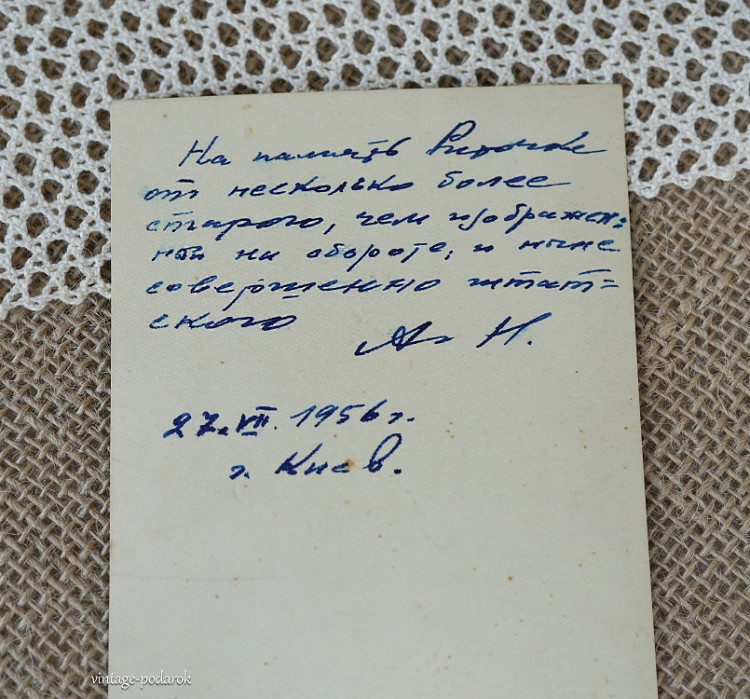 На память Риточке
от несколько более
старого, чем изображен-
ный на обороте, и ныне
совершенно штат-
ского
Ал Н.
27.VII. 1956 г.
г. Киев.
vintage-podarok